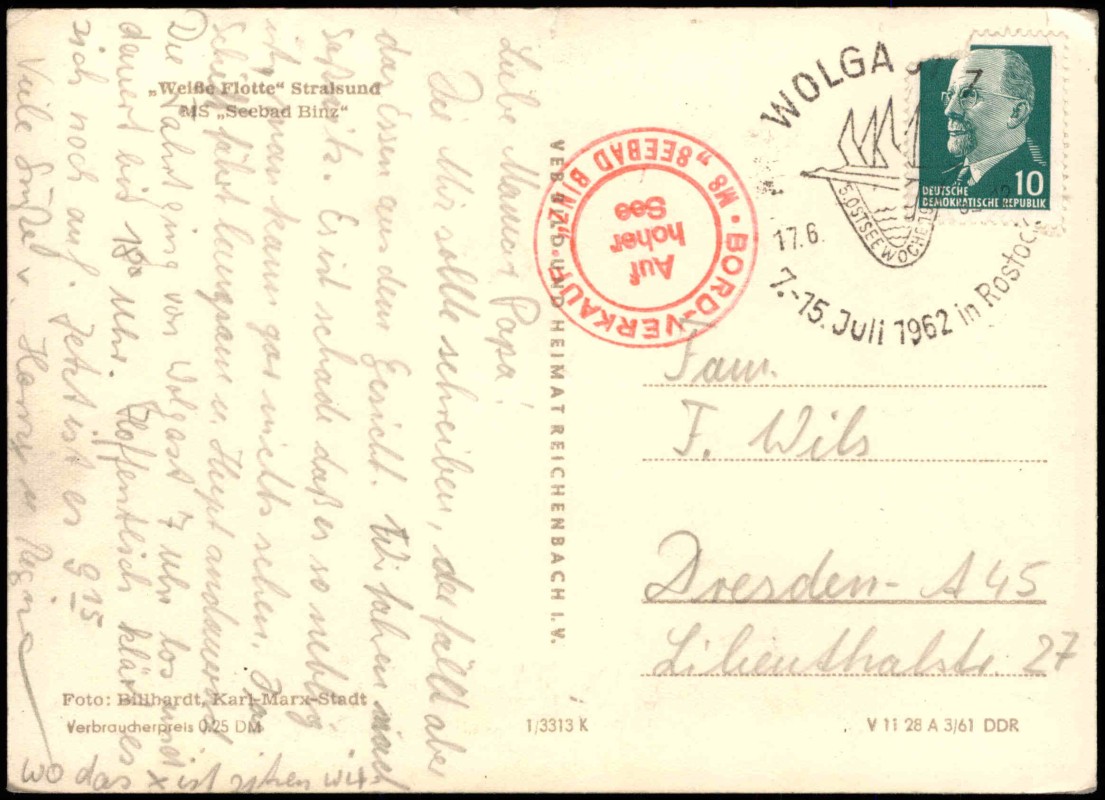 „Weiße Flotte“ Stralsund
MS „Seebad Binz“
Liebe Mama, Papa!
Die Mir sollte schreiben, der fällt aber
das Essen aus dem Gesicht. Wir fahren nach
Saßnitz. Es ist schade daß es so neblig
ist, man kann gar nichts sehen. Das
Schiff fährt langsam u. Hupt andauernd
Die Fahrt ging von Wolgast 7 Uhr los und
dauert bis Uhr. Hoffentlich klärt es
sich noch auf. Jetzt ist es 9 15
Viele Grüße v. Harry u
wo das x ist sitzen wir
Foto: Billhardt, Karl-Marx-Stadt
Verbraucherpreis 0,25 DM
VEB BILD UND HEIMAT REICHENBACH I. V.
1/3313 K
BORD-VERKAUF • MS „SEEBAD BINZ“
Auf
hoher
See
WOLGAST
5. OSTSEEWOCHE
17.6.
7.-15. Juli 1962 in Rostock
10
DEUTSCHE
DEMOKRATISCHE REPUBLIK
Fam.
F. Wils
Dresden- A 45
Lilienthalstr. 27
V 11 28 A 3/61 DDR